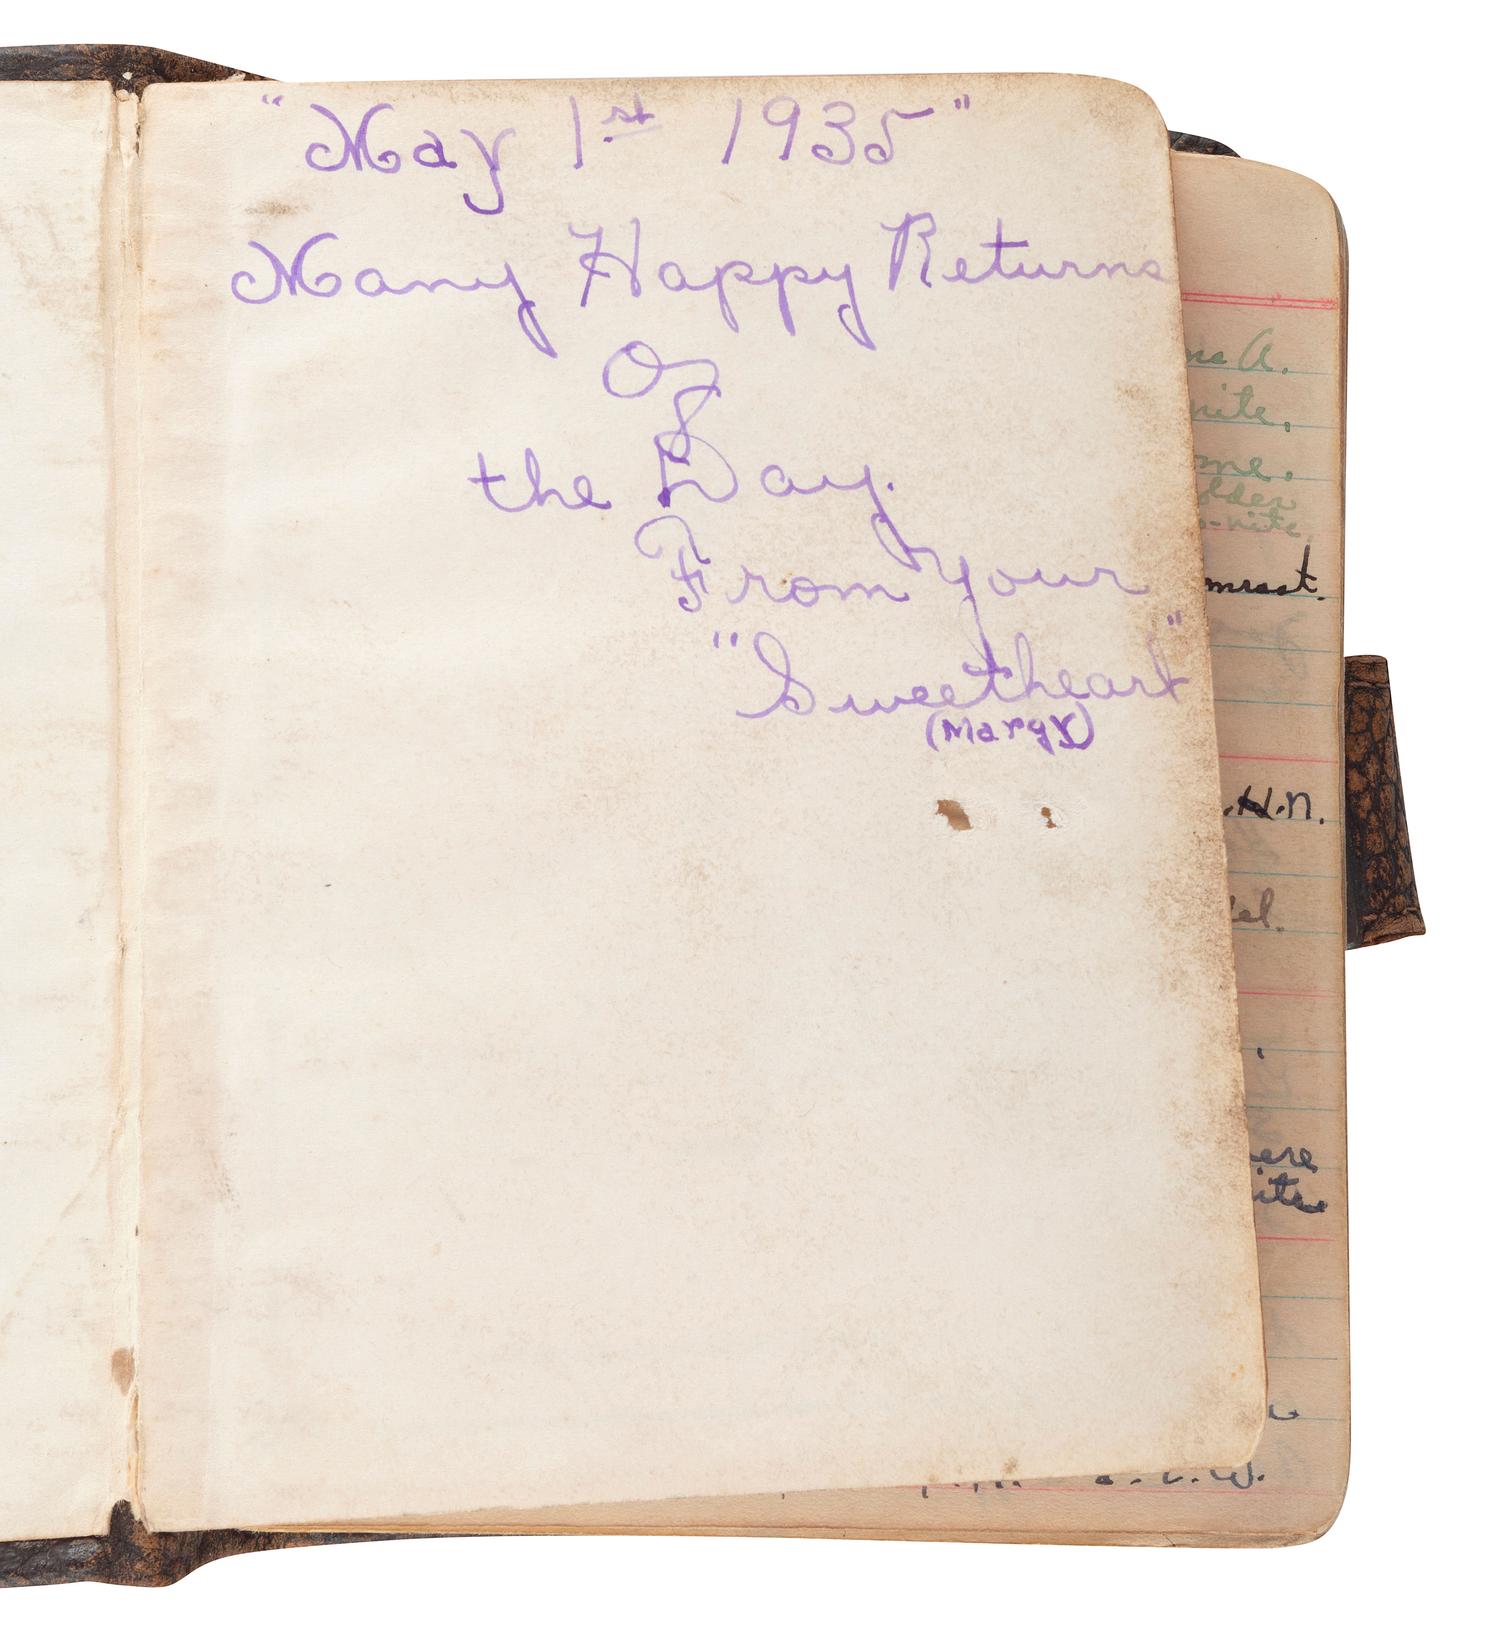 "May 1st 1935"
Many Happy Returns
Of
the Day.
From Your
"Sweetheart"
(Margy)
A.
nite,
me.
olden
o-nite
.H.N.
el.
ere
ite.